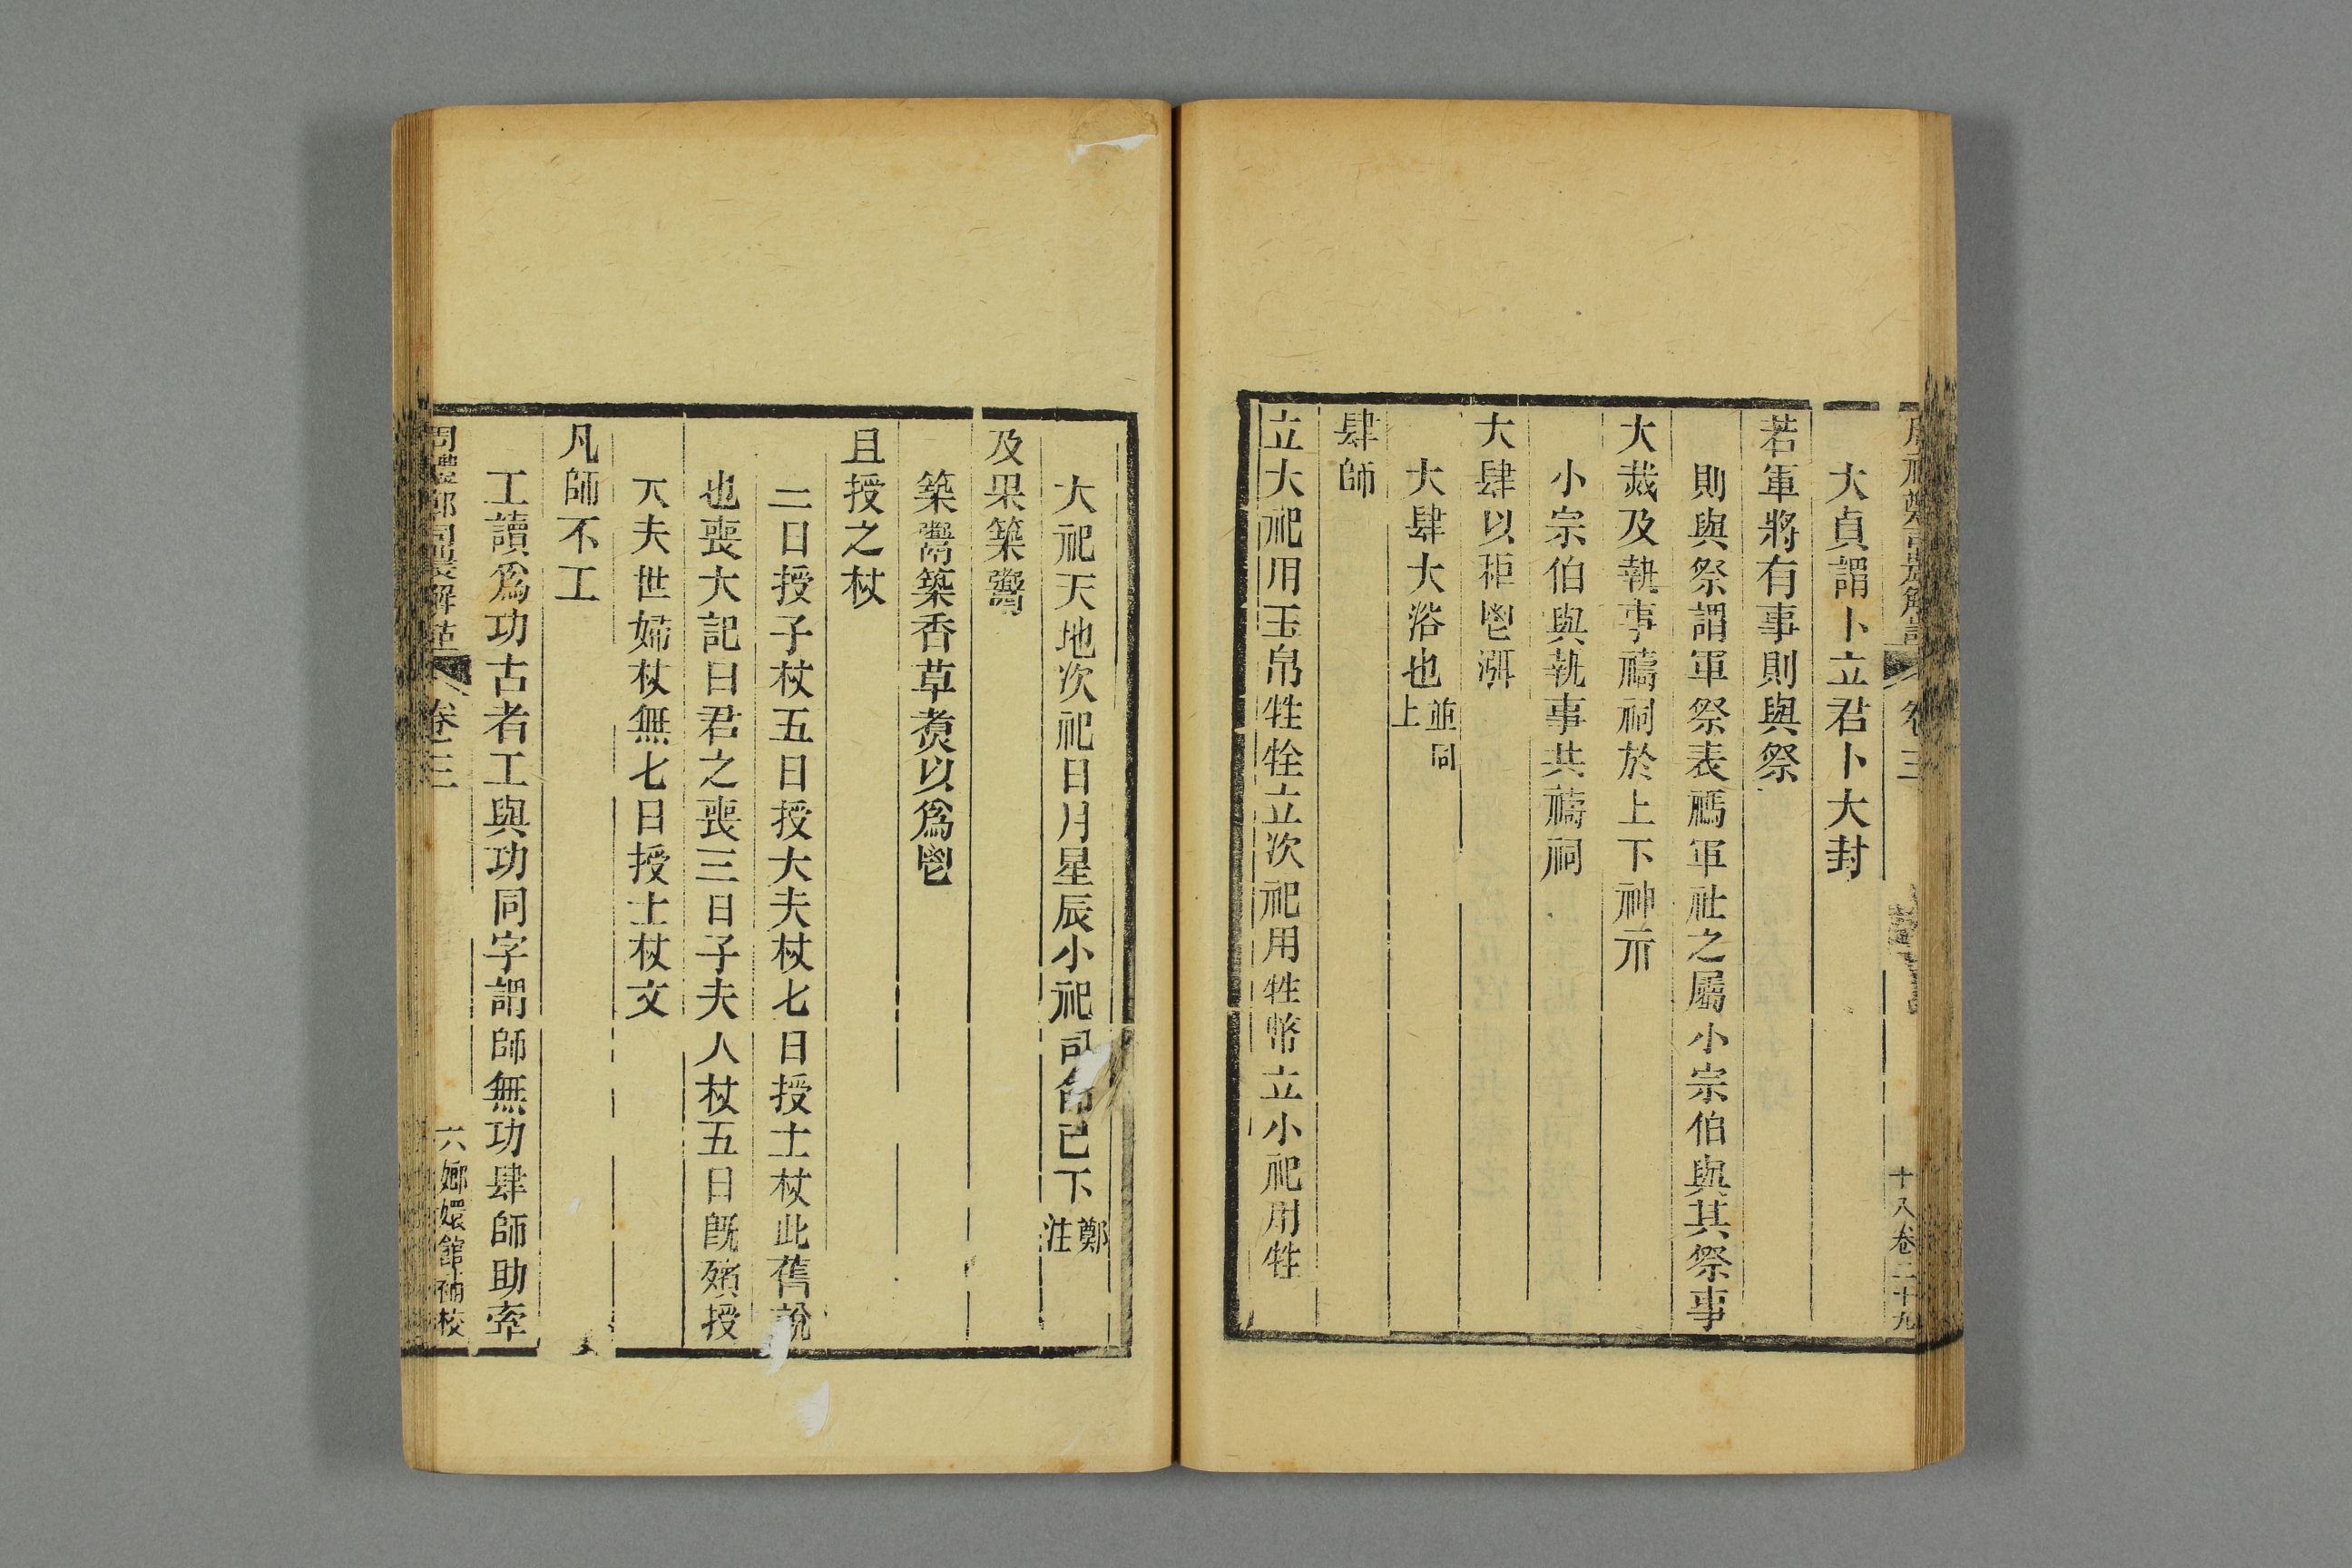 卷三
十八卷二十九
大貞謂卜立君卜大封
若軍將有事則與祭
則與祭謂軍祭表禡軍社之屬小宗伯與其祭事
大烖及執事禱祠於上下神示
小宗伯與執事共禱祠
大肆以秬鬯渳
大肆大浴也並同上
肆師
立大祀用玉帛牲牷立次祀用牲幣立小祀用牲
大祀天地次祀日月星辰小祀司命已下鄭注
及果築鬻
築鬻築香草煑以爲鬯
且授之杖
二日授子杖五日授大夫杖七日授士杖此舊說
也喪大記曰君之喪三日子夫人杖五日旣殯授
大夫世婦杖無七日授士杖文
凡師不工
工讀爲功古者工與功同字謂師無功肆師助牽
周禮鄭司農解詁 卷三
六嫏嬛館補校